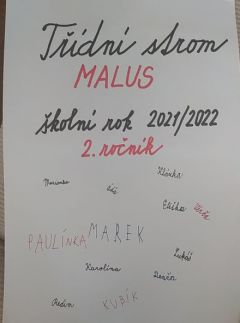 Třídní strom
MALUS
školní rok 2021/2022
2. ročník
Klárka
Marianka
Eliška
PAULÍNKA MAREK
Lukáš
Karolína
KUBÍK